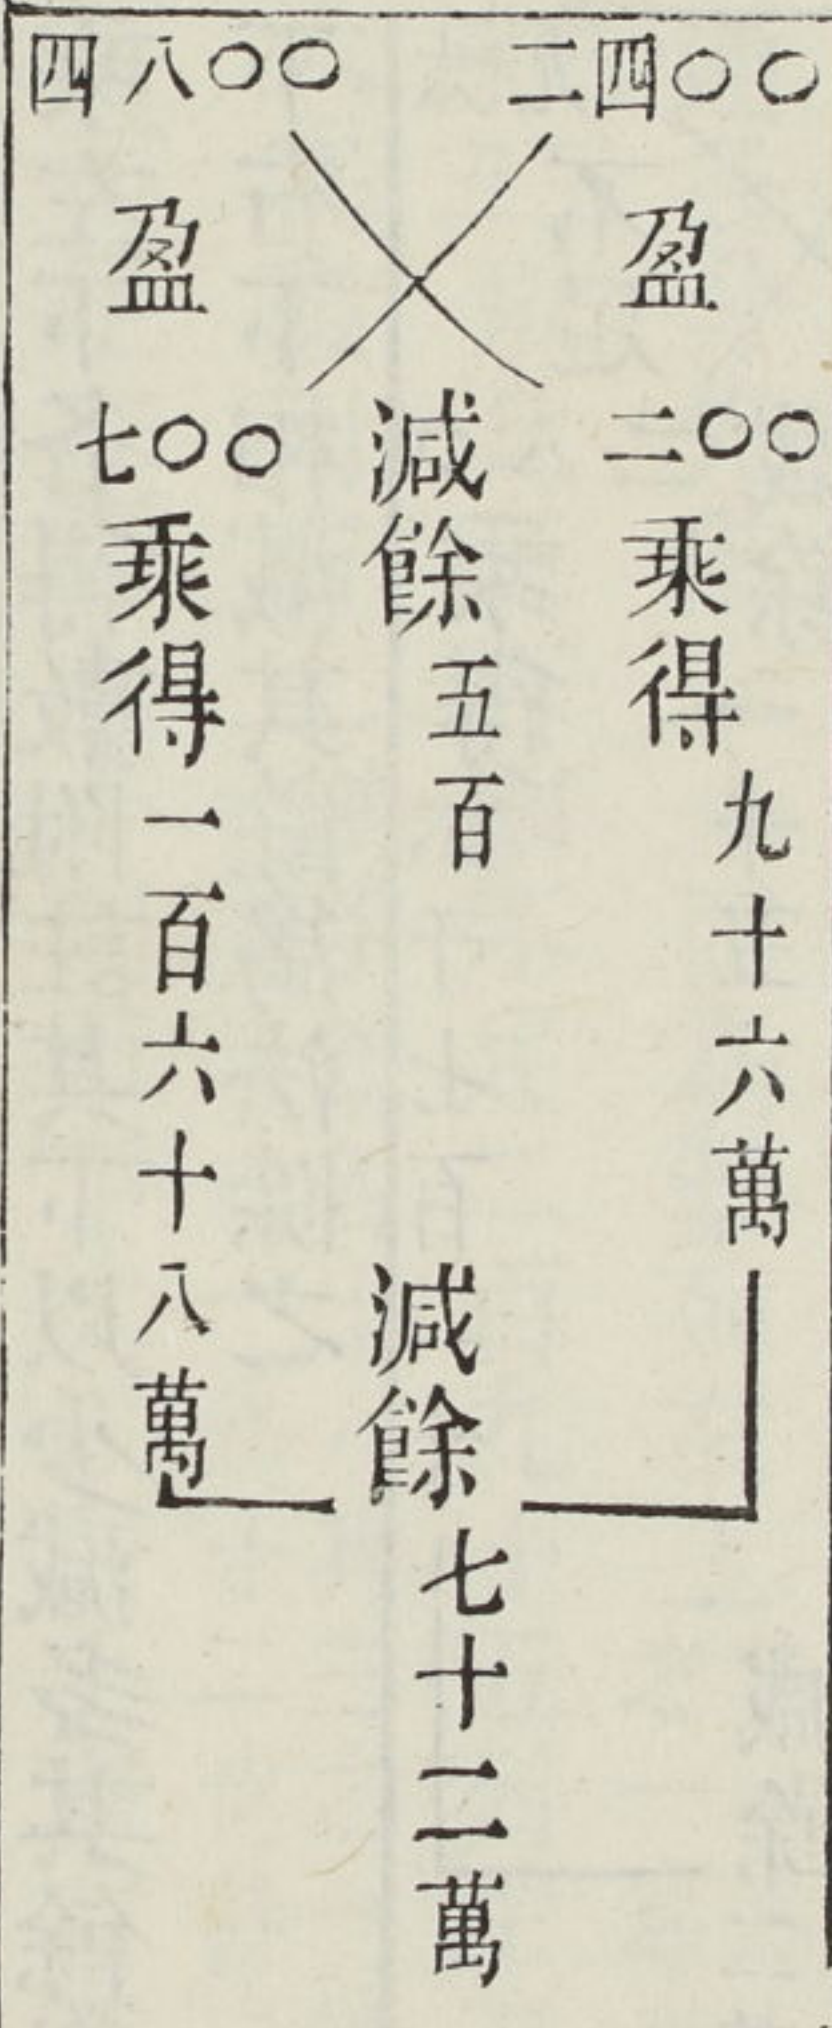 二四〇〇
盈
二〇〇
乘得九十六萬
減餘五百
減餘七十二萬
四八〇〇
盈
七〇〇
乘得一百六十八萬